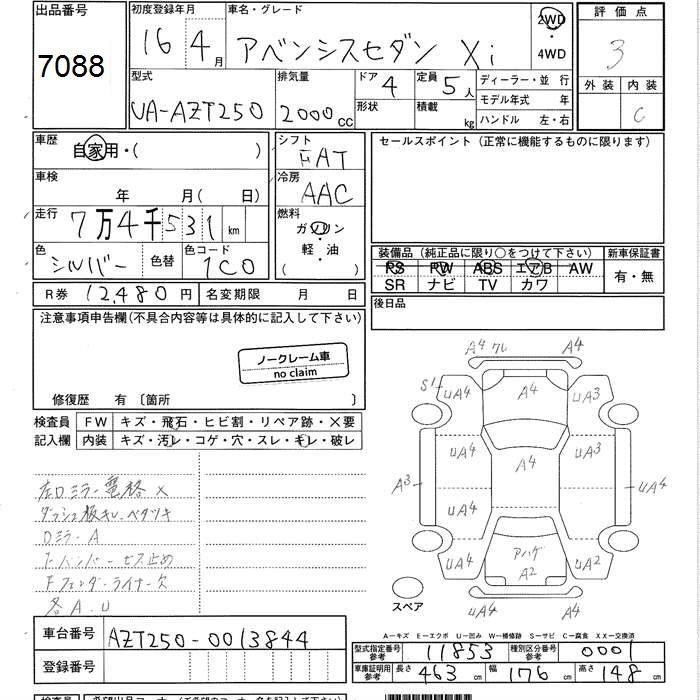 出品番号
7088
初度登録年月
16年4月
車名・グレード
アベンシスセダン Xi
2WD
・
4WD
評価点
3
外装 内装
C
型式
UA-AZT250
排気量
2000cc
ドア 4
形状
定員 5人
積載 kg
ディーラー・並行
モデル年式 年
ハンドル 左・右
車歴
自家用・( )
車検
年 月(日)
走行
7万4千531km
色
シルバー
色替
色コード
1C0
シフト
FAT
冷房
AAC
燃料
ガソリン
・
軽・油
( )
セールスポイント(正常に機能するものに限ります)
装備品(純正品に限り○をつけて下さい)
PS PW ABS エアB AW
SR ナビ TV カワ
新車保証書
有・無
後日品
R券 12,480円 名変期限 月 日
注意事項申告欄(不具合内容等は具体的に記入して下さい)
ノークレーム車
no claim
修復歴 有〔箇所 〕
検査員
記入欄
FW キズ・飛石・ヒビ割・リペア跡・×要
内装 キズ・汚レ・コゲ・穴・スレ・キレ・破レ
左Dミラー電格 ×
ダッシュ板キレ、ベタツキ
Dミラー A
F.バンパービス止め
Fフェンダーライナー欠
各A.U
A4 ワレ A4
S1 UA4 A4 UA3
UA4 A4 UA3
A3 UA4 UA4 UA4
UA4 アハゲ UA2
A2
UA4 A4
スペア
A―キズ E―エクボ U―凹み W―補修跡 S―サビ C―腐食 XX―交換済
車台番号 AZT250-0013844
登録番号
型式指定番号
参考
11853
種別区分番号
参考
0001
車庫証明用
参考
長さ 463cm 幅 176cm 高さ 148cm